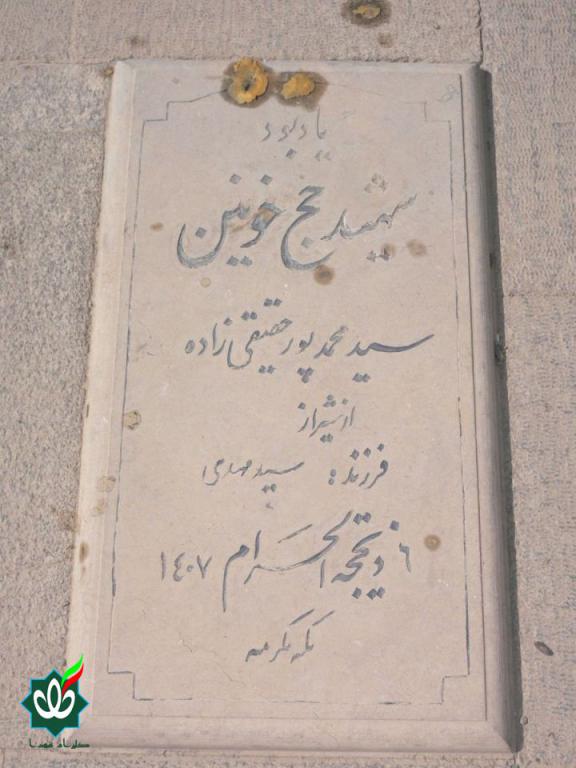 یادبود
شهید حج خونین
سید محمد پور حقیقی زاده
از شیراز
فرزند: سید مهدی
٦ ذیحجه الحرام ١٤٠٧
مکه مکرمه